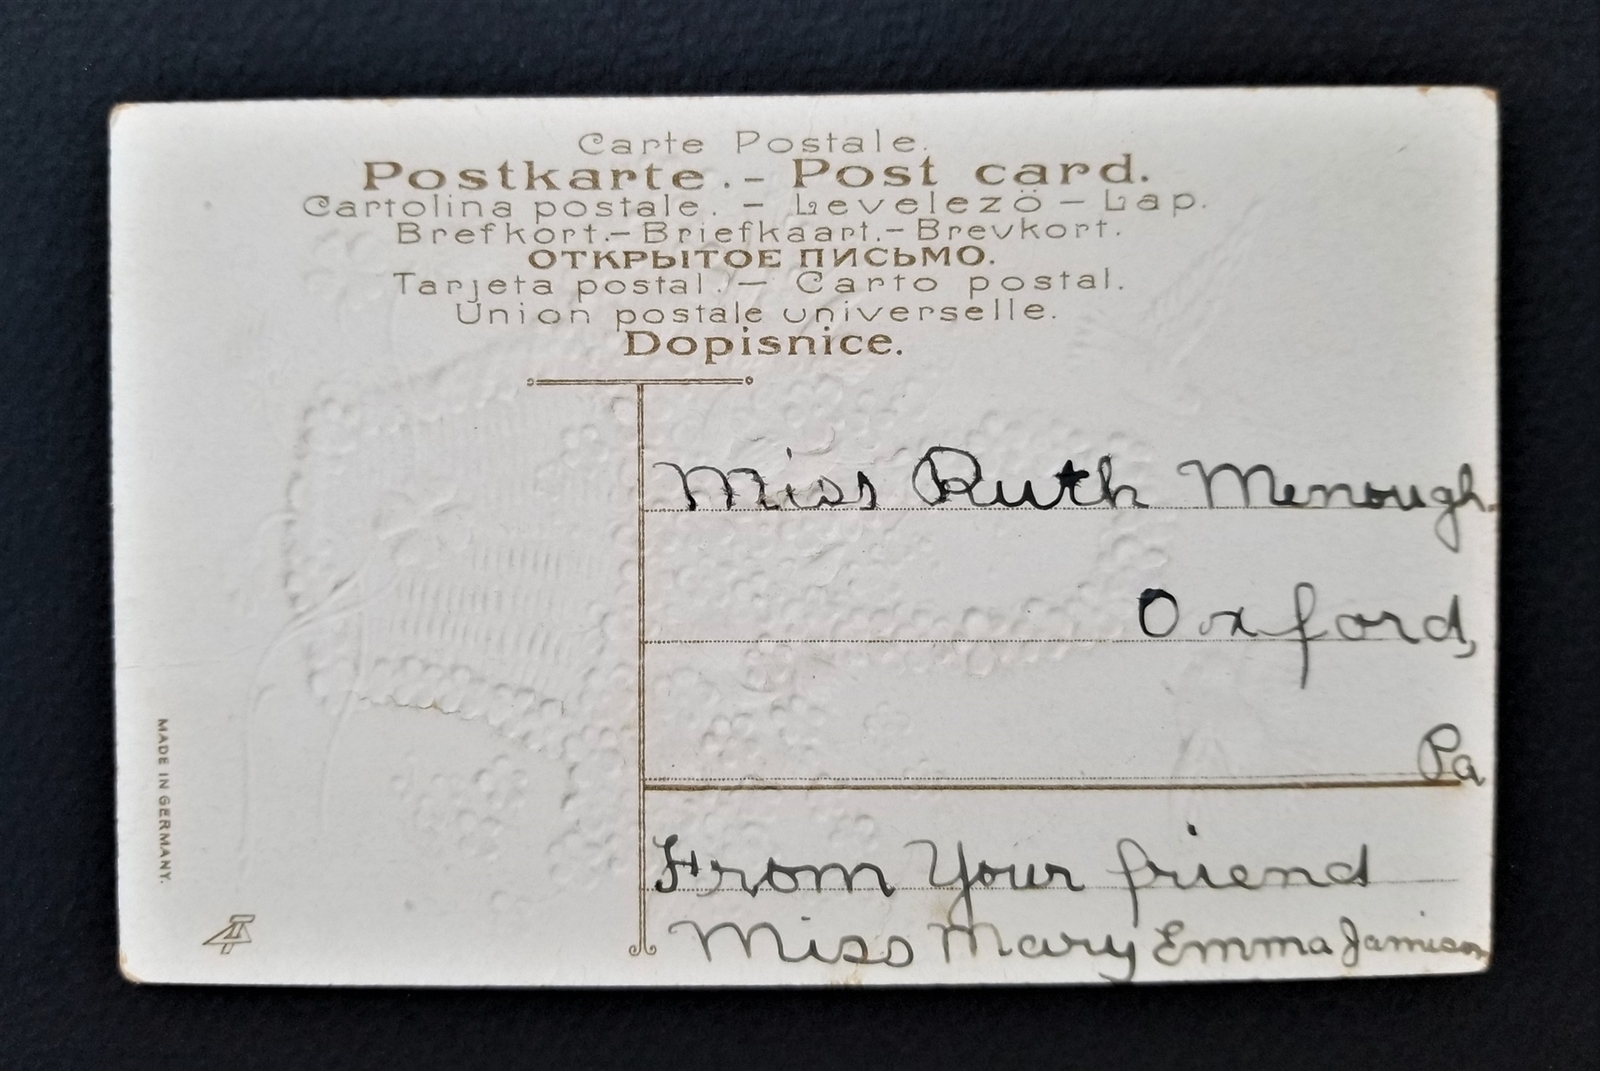 Carte Postale.
Postkarte.- Post card.
Cartolina postale. - Levelezö-Lap.
Brefkort.-Briefkaart.-Brevkort.
ОТКРЫТОЕ ПИСЬМО.
Tarjeta postal.- Carto postal.
Union postale universelle.
Dopisnice.
Miss Ruth Menough
Oxford,
Pa
From Your friend
Miss Mary Emma Jamison
MADE IN GERMANY.